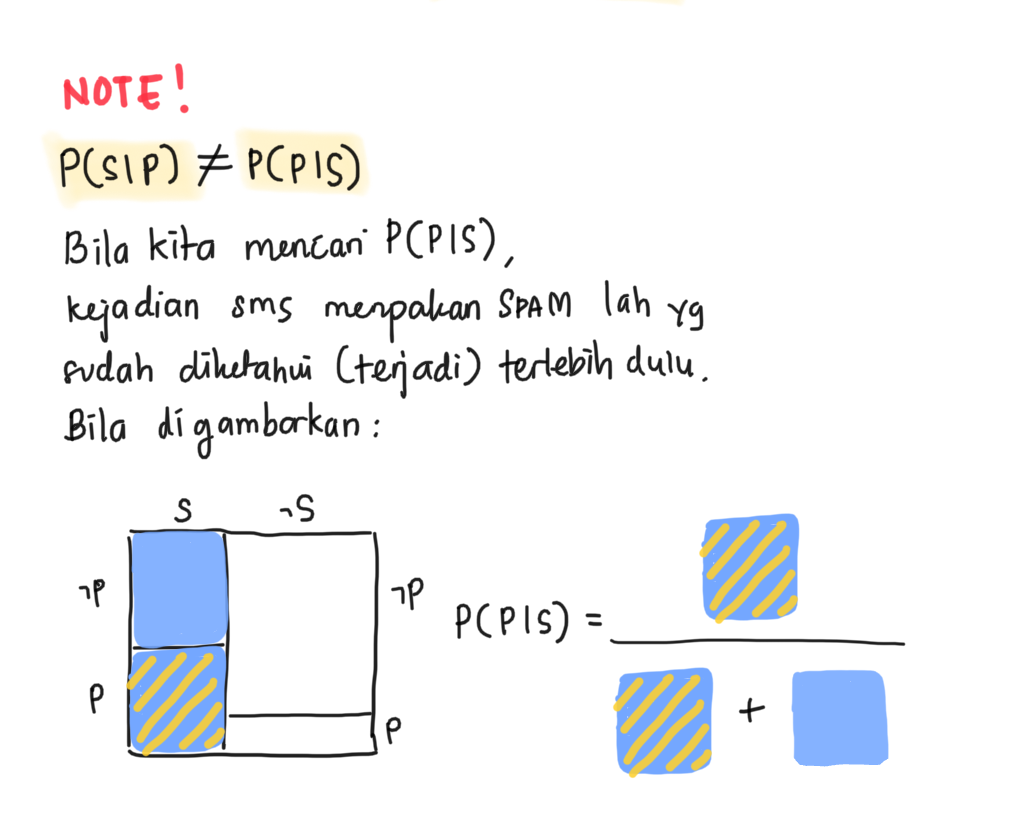 NOTE!
P(S|P) ≠ P(P|S)
Bila kita mencari P(P|S),
kejadian sms merupakan SPAM lah yg
sudah diketahui (terjadi) terlebih dulu.
Bila digambarkan:
S ¬S
¬P ¬P
P(P|S) = +
P P